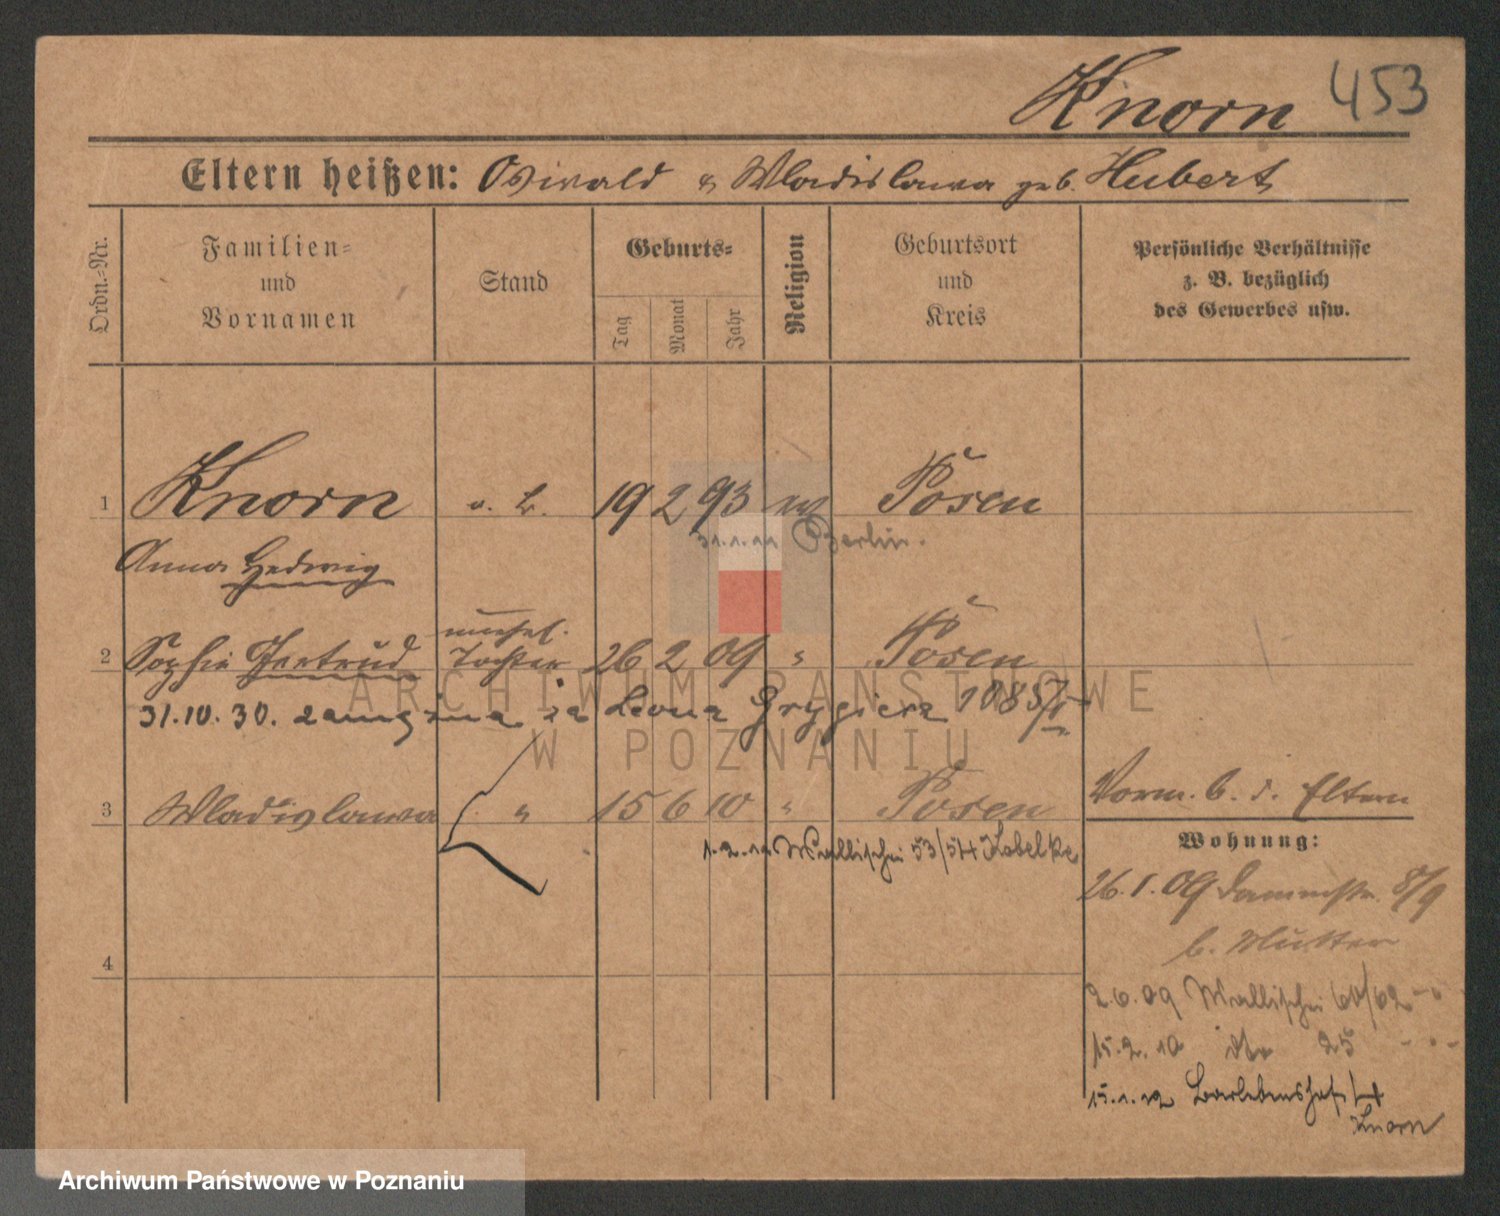 Knorn 453
Eltern heißen: Oswald & Wladislawa geb. Hubert
Ordn.=Nr.
Familien=
und
Vornamen
Stand
Geburts=
Tag
Monat
Jahr
Religion
Geburtsort
und
Kreis
Persönliche Verhältnisse
z. B. bezüglich
des Gewerbes usw.
1 Knorn 19 2 93 Posen
31.1.11 Berlin.
Anna Hedwig
2 Sophie Gertrud unehel. Tochter 26 2 09 " Posen
ARCHIWUM PAŃSTWOWE
31.10.30. zamężna za Leona Grygiera
W POZNANIU
3 Wladislawa " 15 6 10 " Posen
Vorm. b. d. Eltern
Wallischei 53/54
Wohnung:
26.1.09 Dammstr. 8/9
b. Mutter
4
2.6.09 Wallischei 60/62
15.2.10 dto 25
15.1.12
Knorn
Archiwum Państwowe w Poznaniu